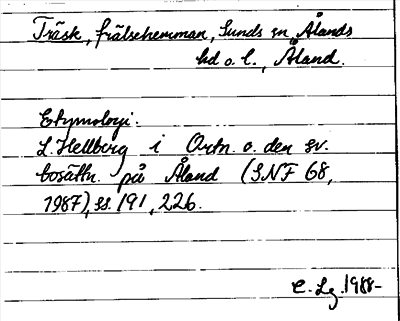 Träsk, frälsehemman, Sunds sn, Ålands
hd o. l., Åland.
Etymologi.
L. Hellberg i Ortn. o. den sv.
bosättn. på Åland (SNF 68,
1987), ss. 191, 226.
C. Lg. 1988-